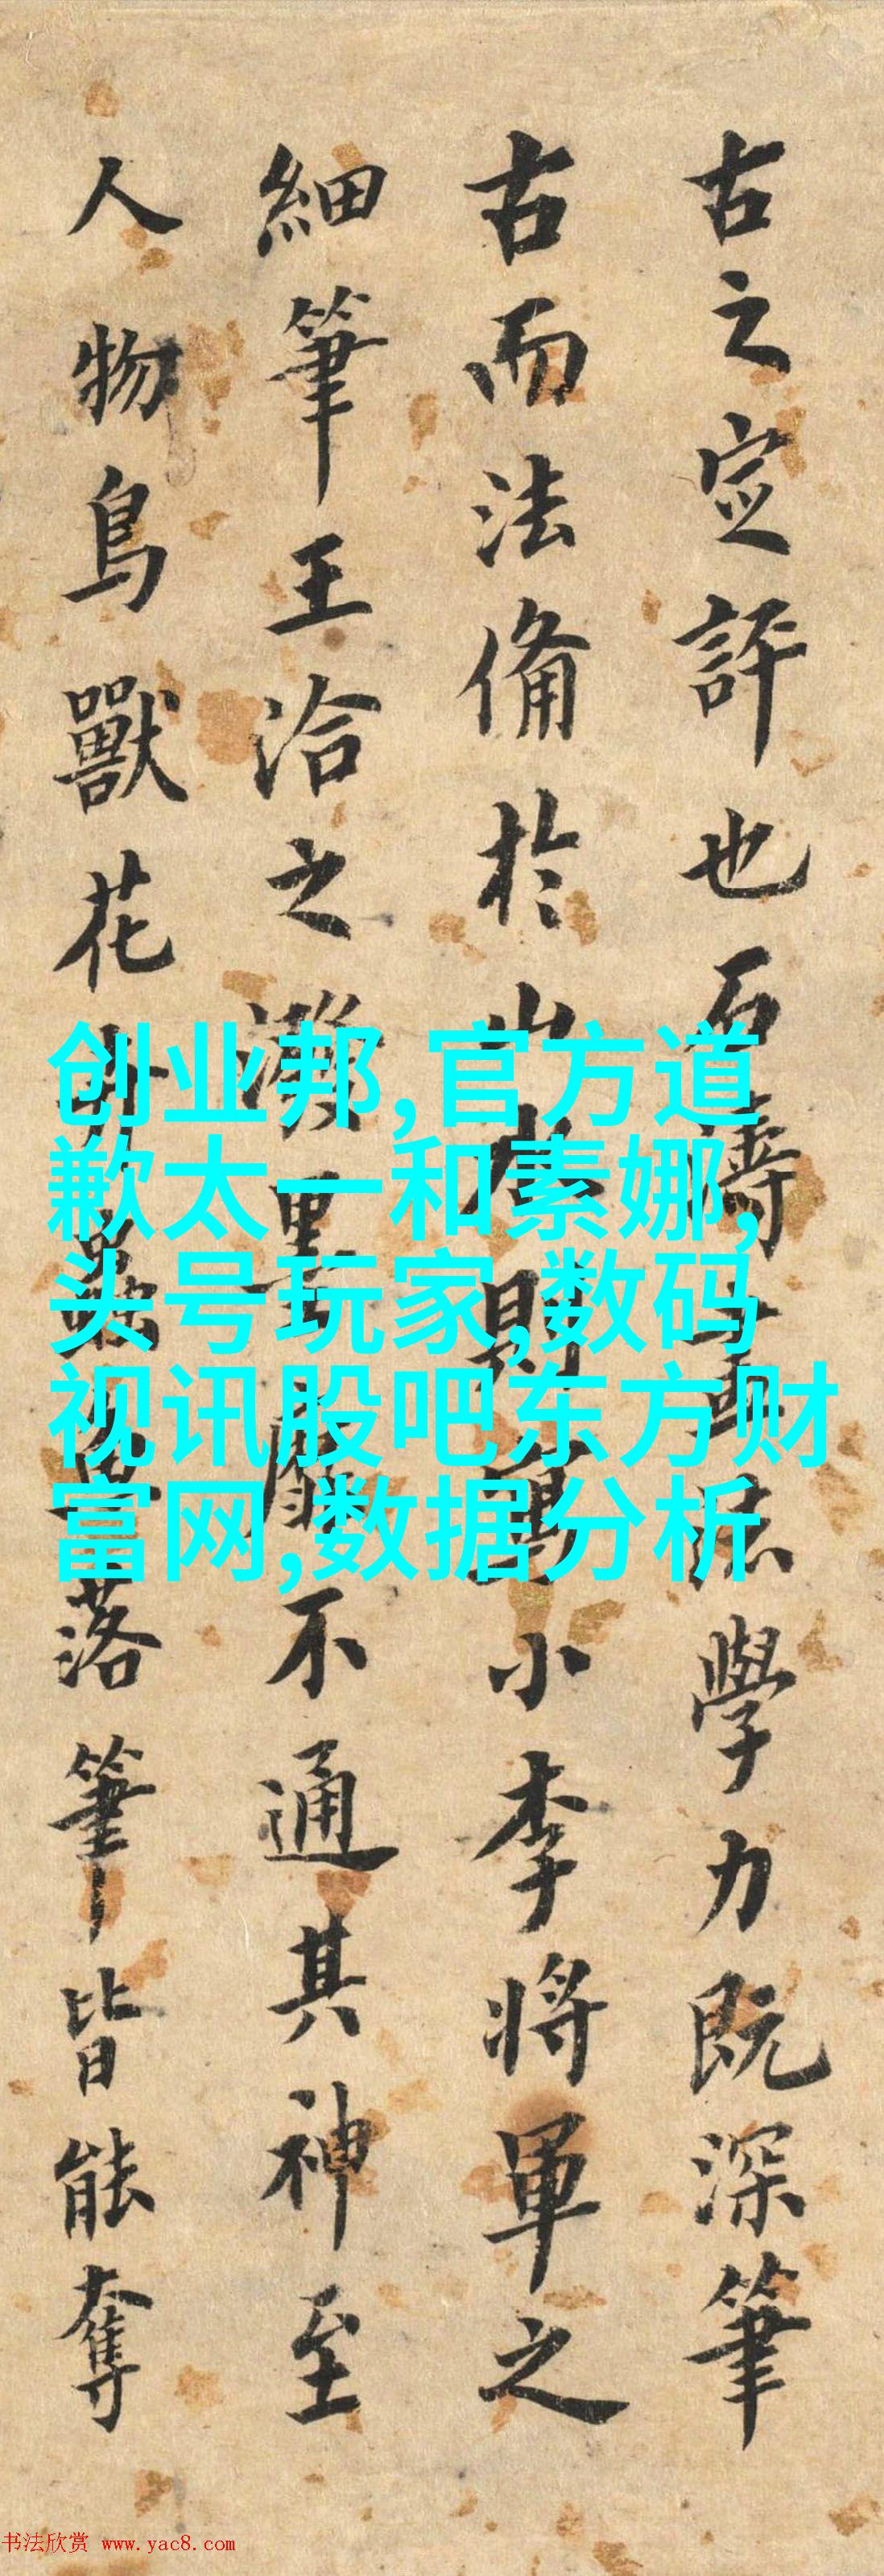 古之定評也石濤畫法學力既深筆
古而法備於山水則萬小李將軍之
細筆王洽之潑墨靡不通其神至
人物鳥獸花卉蟲魚落筆皆能奪
创业邦,官方道
歉太一和素娜,
头号玩家,数码
视讯股吧东方财
富网,数据分析
书法欣赏 www.yac8.com